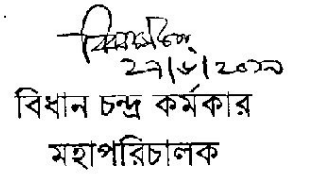 ২৭/৬/২০১৯
বিধান চন্দ্র কর্মকার
মহাপরিচালক